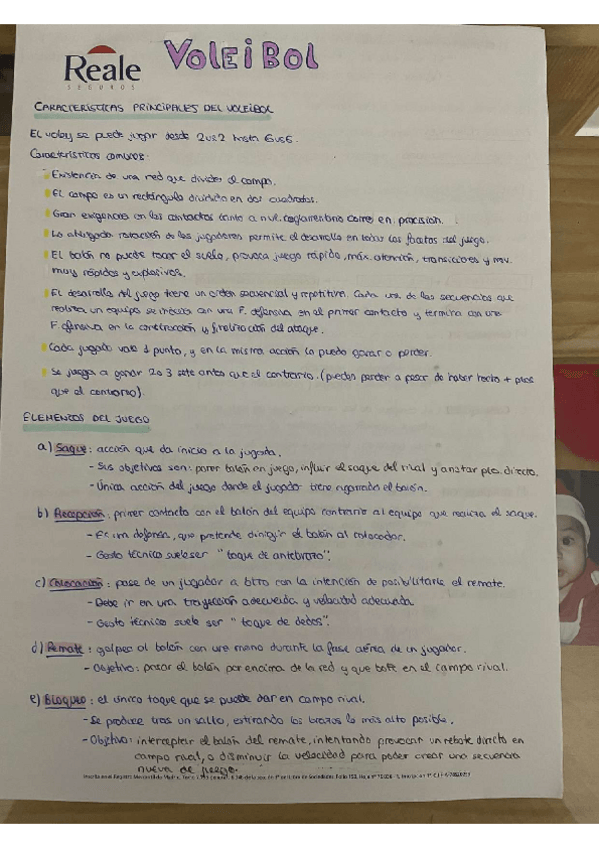 Reale
SEGUROS
VOLEIBOL
CARACTERÍSTICAS PRINCIPALES DEL VOLEIBOL
El voley se puede jugar desde 2vs2 hasta 6vs6.
Características comunes:
Existencia de una red que divide el campo.
El campo es un rectángulo dividido en dos cuadrados.
Gran exigencia en los contactos tanto a nivel reglamentario como en precisión.
La obligada rotación de los jugadores permite el desarrollo en todas las facetas del juego.
El balón no puede tocar el suelo, provoca juego rápido, máx. atención, transiciones y mov.
muy rápidos y explosivos.
El desarrollo del juego tiene un orden secuencial y repetitivo. Cada una de las secuencias que
realiza un equipo se inicia con una F. defensiva en el primer contacto y termina con una
F. ofensiva en la construcción y finalización del ataque.
Cada jugada vale 1 punto, y en la misma acción lo puedo ganar o perder.
Se juega a ganar 2 o 3 sets antes que el contrario. (puedes perder a pesar de haber hecho + ptos
que el contrario).
ELEMENTOS DEL JUEGO
a) Saque: acción que da inicio a la jugada.
- Sus objetivos son: poner balón en juego, influir el saque del rival y anotar pto. directo.
- Única acción del juego donde el jugador tiene agarrado el balón.
b) Recepción: primer contacto con el balón del equipo contrario al equipo que realiza el saque.
- Es una defensa, que pretende dirigir el balón al colocador.
- Gesto técnico suele ser "toque de antebrazo".
c) Colocación: pase de un jugador a otro con la intención de posibilitarle el remate.
- Debe ir en una trayección adecuada y velocidad adecuada
- Gesto técnico suele ser "toque de dedos".
d) Remate: golpeo al balón con una mano durante la fase aérea de un jugador.
- Objetivo: pasar el balón por encima de la red y que bote en el campo rival.
e) Bloqueo: el único toque que se puede dar en campo rival.
- Se produce tras un salto, estirando los brazos lo más alto posible.
- Objetivo: interceptar el balón del remate, intentando provocar un rebote directo en
campo rival, o disminuir la velocidad para poder crear una secuencia
nueva de juego.